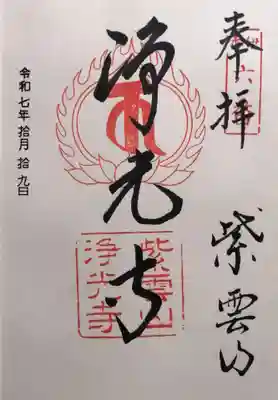 奉拝
紫雲山
浄光寺
令和七年拾月拾九日
紫雲山
浄光寺